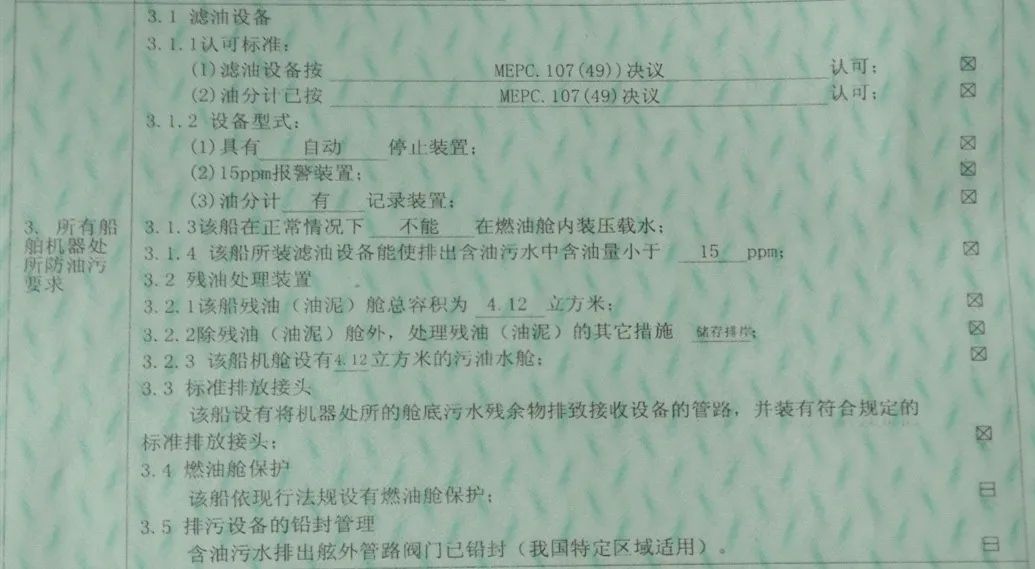 3.1 滤油设备
3.1.1认可标准:
(1)滤油设备按 MEPC.107(49))决议 认可; ☒
(2)油分计已按 MEPC.107(49)决议 认可; ☒
3.1.2 设备型式:
(1)具有 自动 停止装置; ☒
(2)15ppm报警装置; ☒
(3)油分计 有 记录装置; ☒
3、所有船
舶机器处
所防油污
要求
3.1.3该船在正常情况下 不能 在燃油舱内装压载水;
3.1.4 该船所装滤油设备能使排出含油污水中含油量小于 15 ppm; ☒
3.2 残油处理装置
3.2.1该船残油(油泥)舱总容积为 4.12 立方米; ☒
3.2.2除残油(油泥)舱外,处理残油(油泥)的其它措施 储存排岸; ☒
3.2.3 该船机舱设有4.12立方米的污油水舱; ☒
3.3 标准排放接头
该船设有将机器处所的舱底污水残余物排致接收设备的管路,并装有符合规定的
标准排放接头; ☒
3.4 燃油舱保护
该船依现行法规设有燃油舱保护; ⊟
3.5 排污设备的铅封管理
含油污水排出舷外管路阀门已铅封(我国特定区域适用)。 ⊟